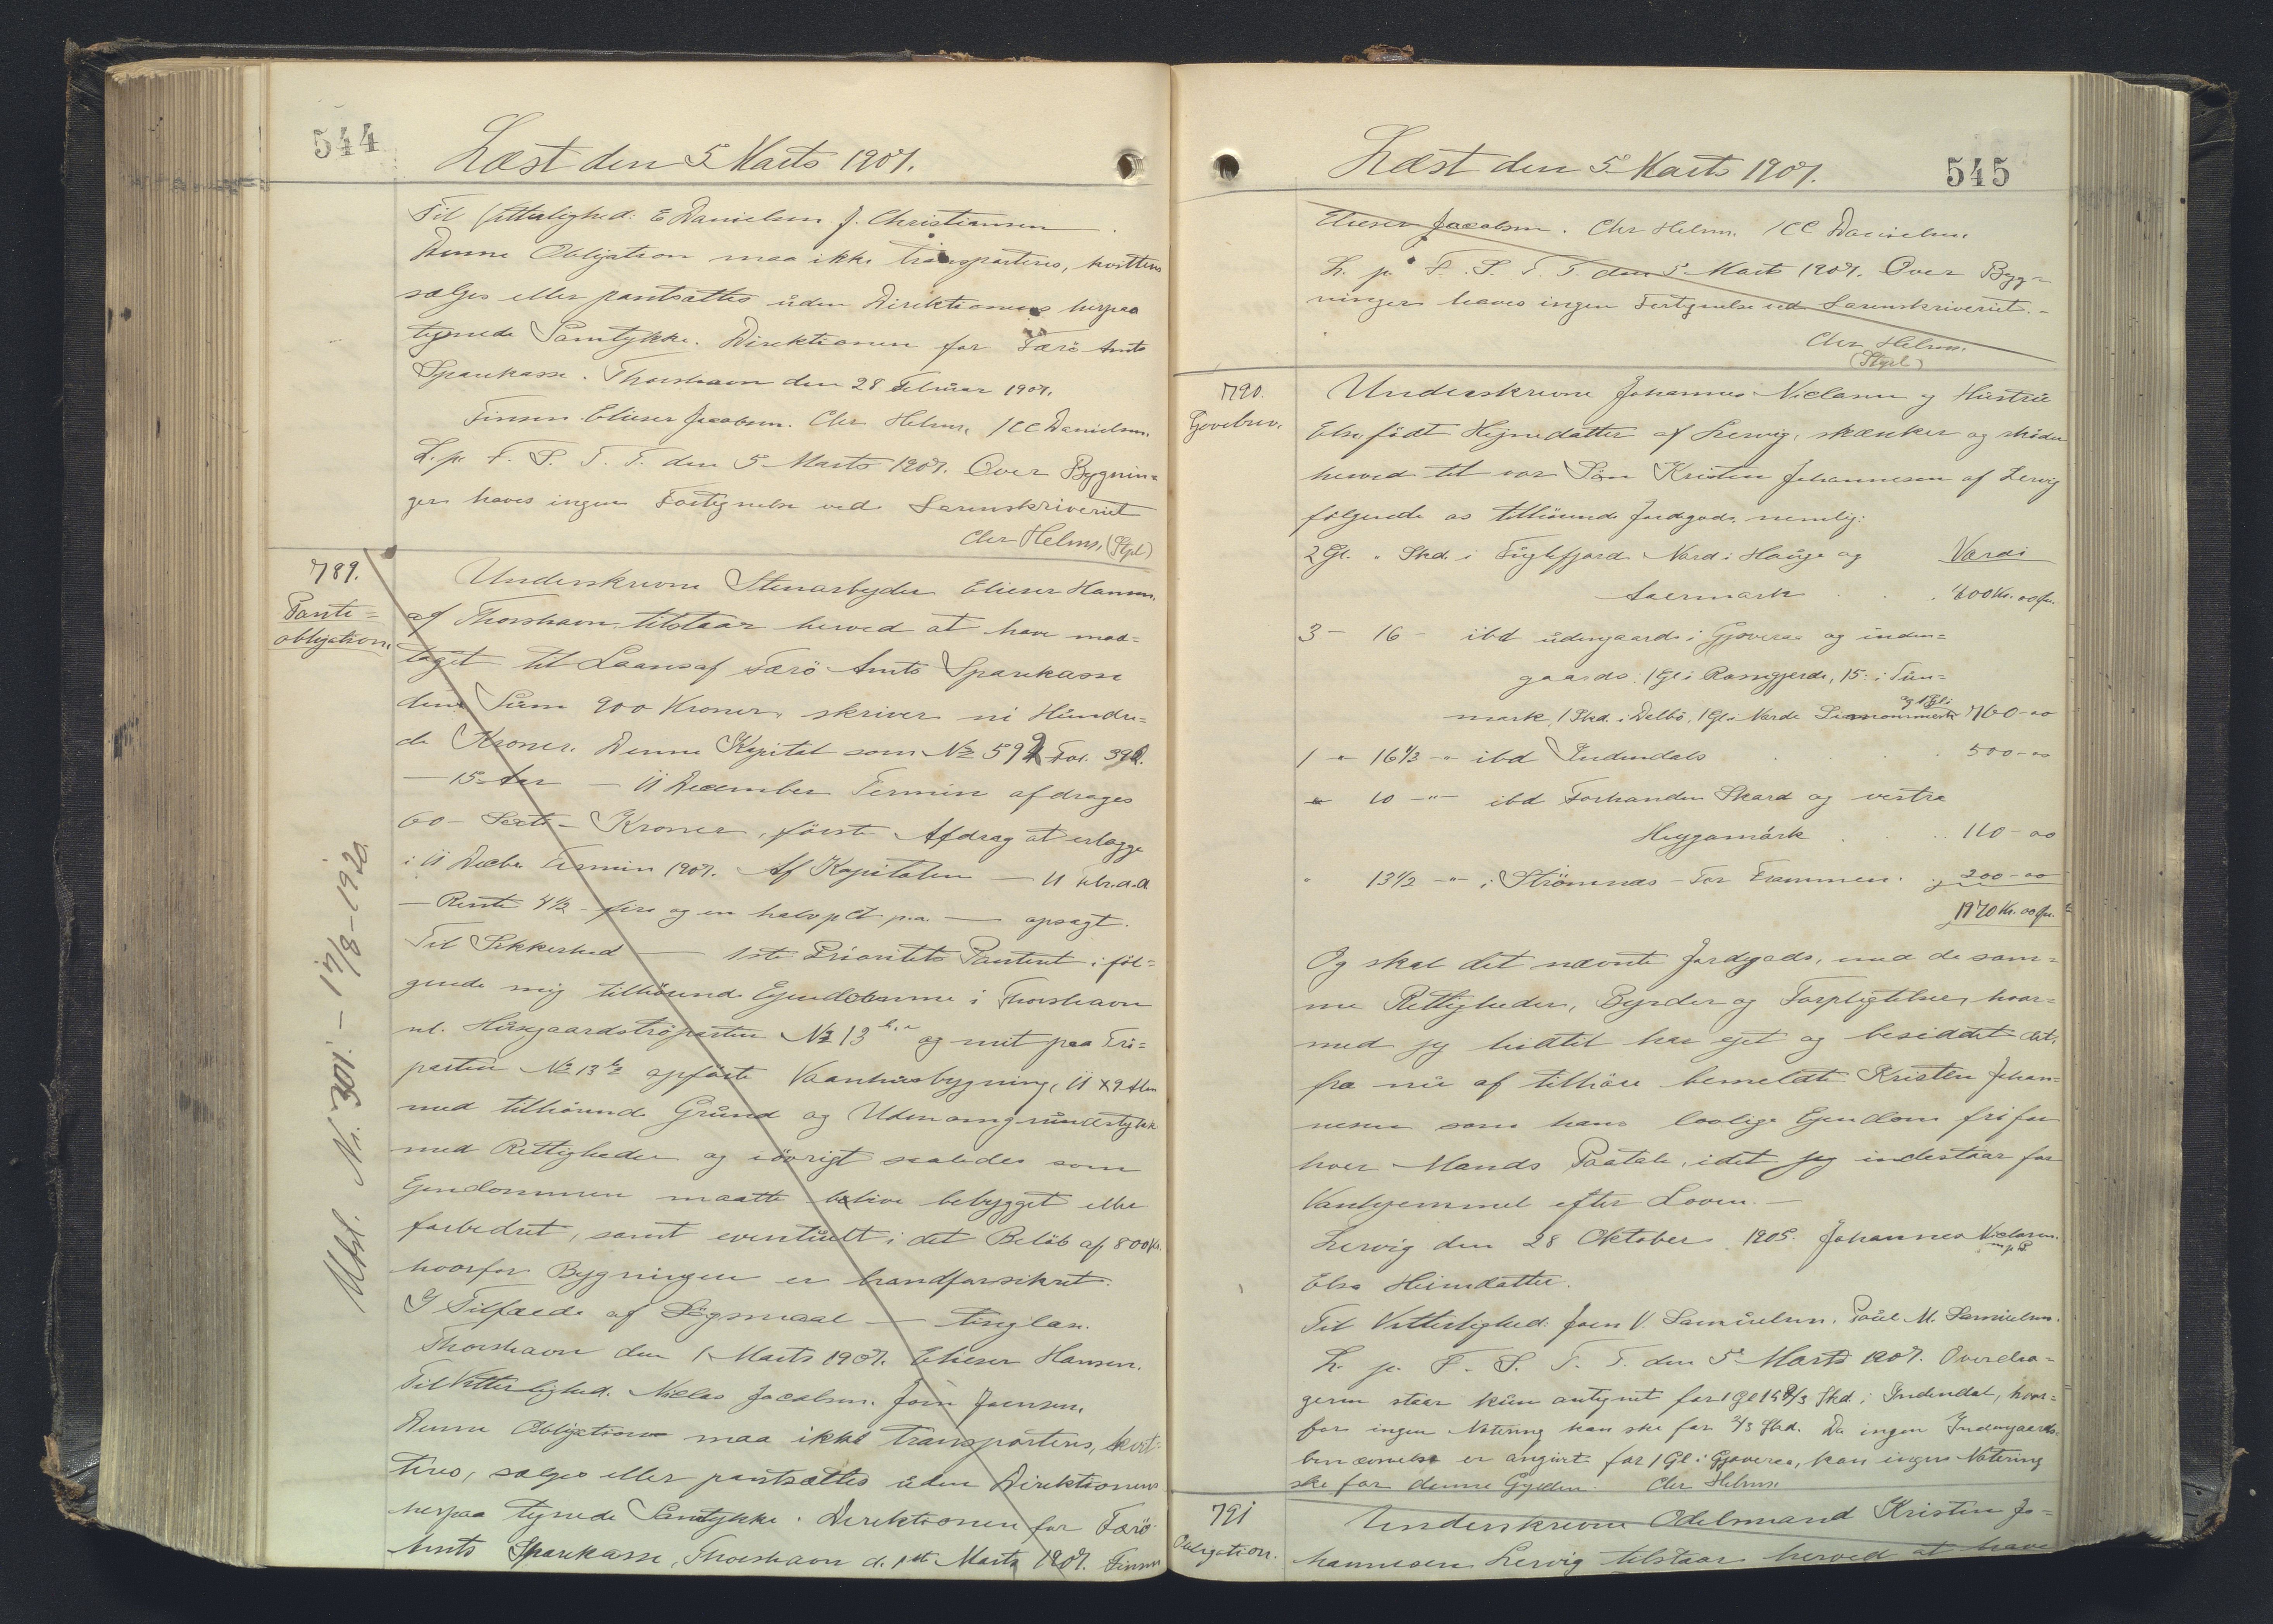 544
Læst den 5 Marts 1907.
Til Vitterlighed: E Danielsen J. Christiansen
Denne Obligation maa ikke transporteres, kvitteres
sælges eller pantsættes uden Direktionens herpaa
tegnede Samtykke. Direktionen for Færö Amts
Sparekasse. Thorshavn den 28 Februar 1907.
Finsen Elieser Jacobsen. Chr Helms, KC Danielsen.
L. p. F. S. T. T. den 5 Marts 1907. Over Bygnin=
ger haves ingen Fortegnelse ved Sorenskriveriet
Chr Helms, (Stpl)
789.
Pante=
obligation.
Underskrevne Stenarbejder Elieser Hansen
af Thorshavn tilstaar herved at have mod=
taget til Laans af Færö Amts Sparekasse
den Sum 900 Kroner, skriver ni Hundre=
de Kroner. Denne Kapital som No 592 Fol. 392.
— 15 Aar — 11 December Termin afdrages
60 - Sexti - Kroner, förste Afdrag at erlægge
i 11 Decbr Termin 1907. Af Kapitalen — 11
— Rente 4½ - fire og en halv pCt p.a. — opsagt.
Til Sikkerhed — 1ste Prioritets Panteret i föl=
gende mig tilhörende Ejendomme i Thorshavn
nl. Husgaardströparten No 13 og mit paa Trö=
parten No 13 opförte Vaanhusbygning, 11 x 9 Alen
med tilhörende Grund og Udenomsgrundstykke
med Rettigheder og iövrigt saaledes som
Ejendommen maatte blive bebygget eller
forbedret, samt eventuelt i det Belöb af 800 Kr.
hvorfor Bygningen er brandforsikret.
I Tilfælde af Sögsmaal — tinglæs.
Thorshavn den 1 Marts 1907. Elieser Hansen.
Til Vitterlighed. Niclas Jacobsen. Joen Joensen.
Denne Obligation maa ikke transporteres, kvit=
teres, sælges eller pantsættes uden Direktionens
herpaa tegnede Samtykke. Direktionen for Færö
Amts Sparekasse, Thorshavn d. 1ste Marts 1907. Finsen
Udsl. Nr. 301. - 17/8 - 1920.
545
Læst den 5 Marts 1907.
Elieser Jacobsen. Chr Helms. KC Danielsen
L. p. F. S. T. T. den 5 Marts 1907. Over Byg=
ninger haves ingen Fortegnelse ved Sorenskriveriet.-
Chr Helms.
(Stpl)
790.
Gavebrev.
Underskrevne Johannes Niclasen og Hustru
Else födt Hejnedatter af Lervig, skænker og sköder
herved til vor Sön Kristen Johannesen af Lervig
fölgende os tilhörende Jordegods, nemlig:
2 Gl. " Skd. i Fuglefjord Nord i Hauge og Værdi
Aaermark . . . 400 Kr. 00 Öre.
3 - 16 - ibd udengaards i Gjoveraa og inden=
gaards: 1 Gl i Rossegjerde, 15 i Tun=
mark, 1 Skd. i Delbö, 1 Gl i Norde og 1 Gl i 760-00
1 -"- 16⅓ -"- ibd Indendals . . . 500-00
" 10 -"- ibd Forhanden Skard og vestre
Heygamark . . . 110-00
" 13½ -"- i Strömnæs - For Frammen. 200-00
1970 Kr. 00 Öre.
Og skal det nævnte Jordegods, med de sam=
me Rettigheder, Byrder og Forpligtelser, hvor=
med jeg hidtil har ejet og besiddet det,
fra nu af tilhöre bemeldte Kristen Johan=
nesen som hans lovlige Ejendom fri for
hver Mands Paatale, idet jeg indestaar for
Vanhjemmel efter Loven. —
Lervig den 28 Oktober 1905. Johannes Niclasen.
m. p. P.
Else Heinedatter.
Til Vitterlighed: Joen V. Samuelsen, Poul M. Samuelsen.
L. p. F. S. T. T. den 5 Marts 1907. Overdra=
geren staar kun antegnet for 1 Gl 15⅔ Skd. i Indendal, hvor=
for ingen Notering kan ske for ⅔ Skd. Da ingen Indengaards
benævnelse er angivet for 1 Gl i Gjoveraa, kan ingen Notering
ske for denne Gylden. Chr Helms.
791
Obligation.
Underskrevne Odelsmand Kristen Jo=
hannesen Lervig tilstaar herved at have